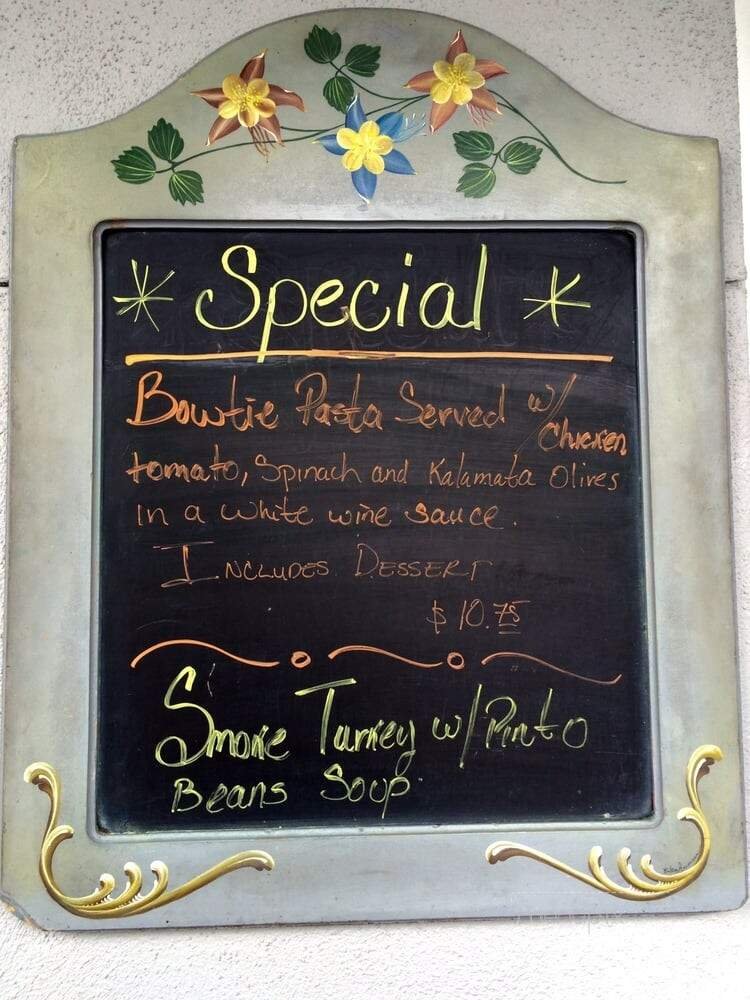 * Special *
Bowtie Pasta Served w/ Chicken
tomato, Spinach and Kalamata Olives
in a white wine sauce.
INCLUDES DESSERT
$10.75
Smoke Turkey w/ Pinto
Beans Soup